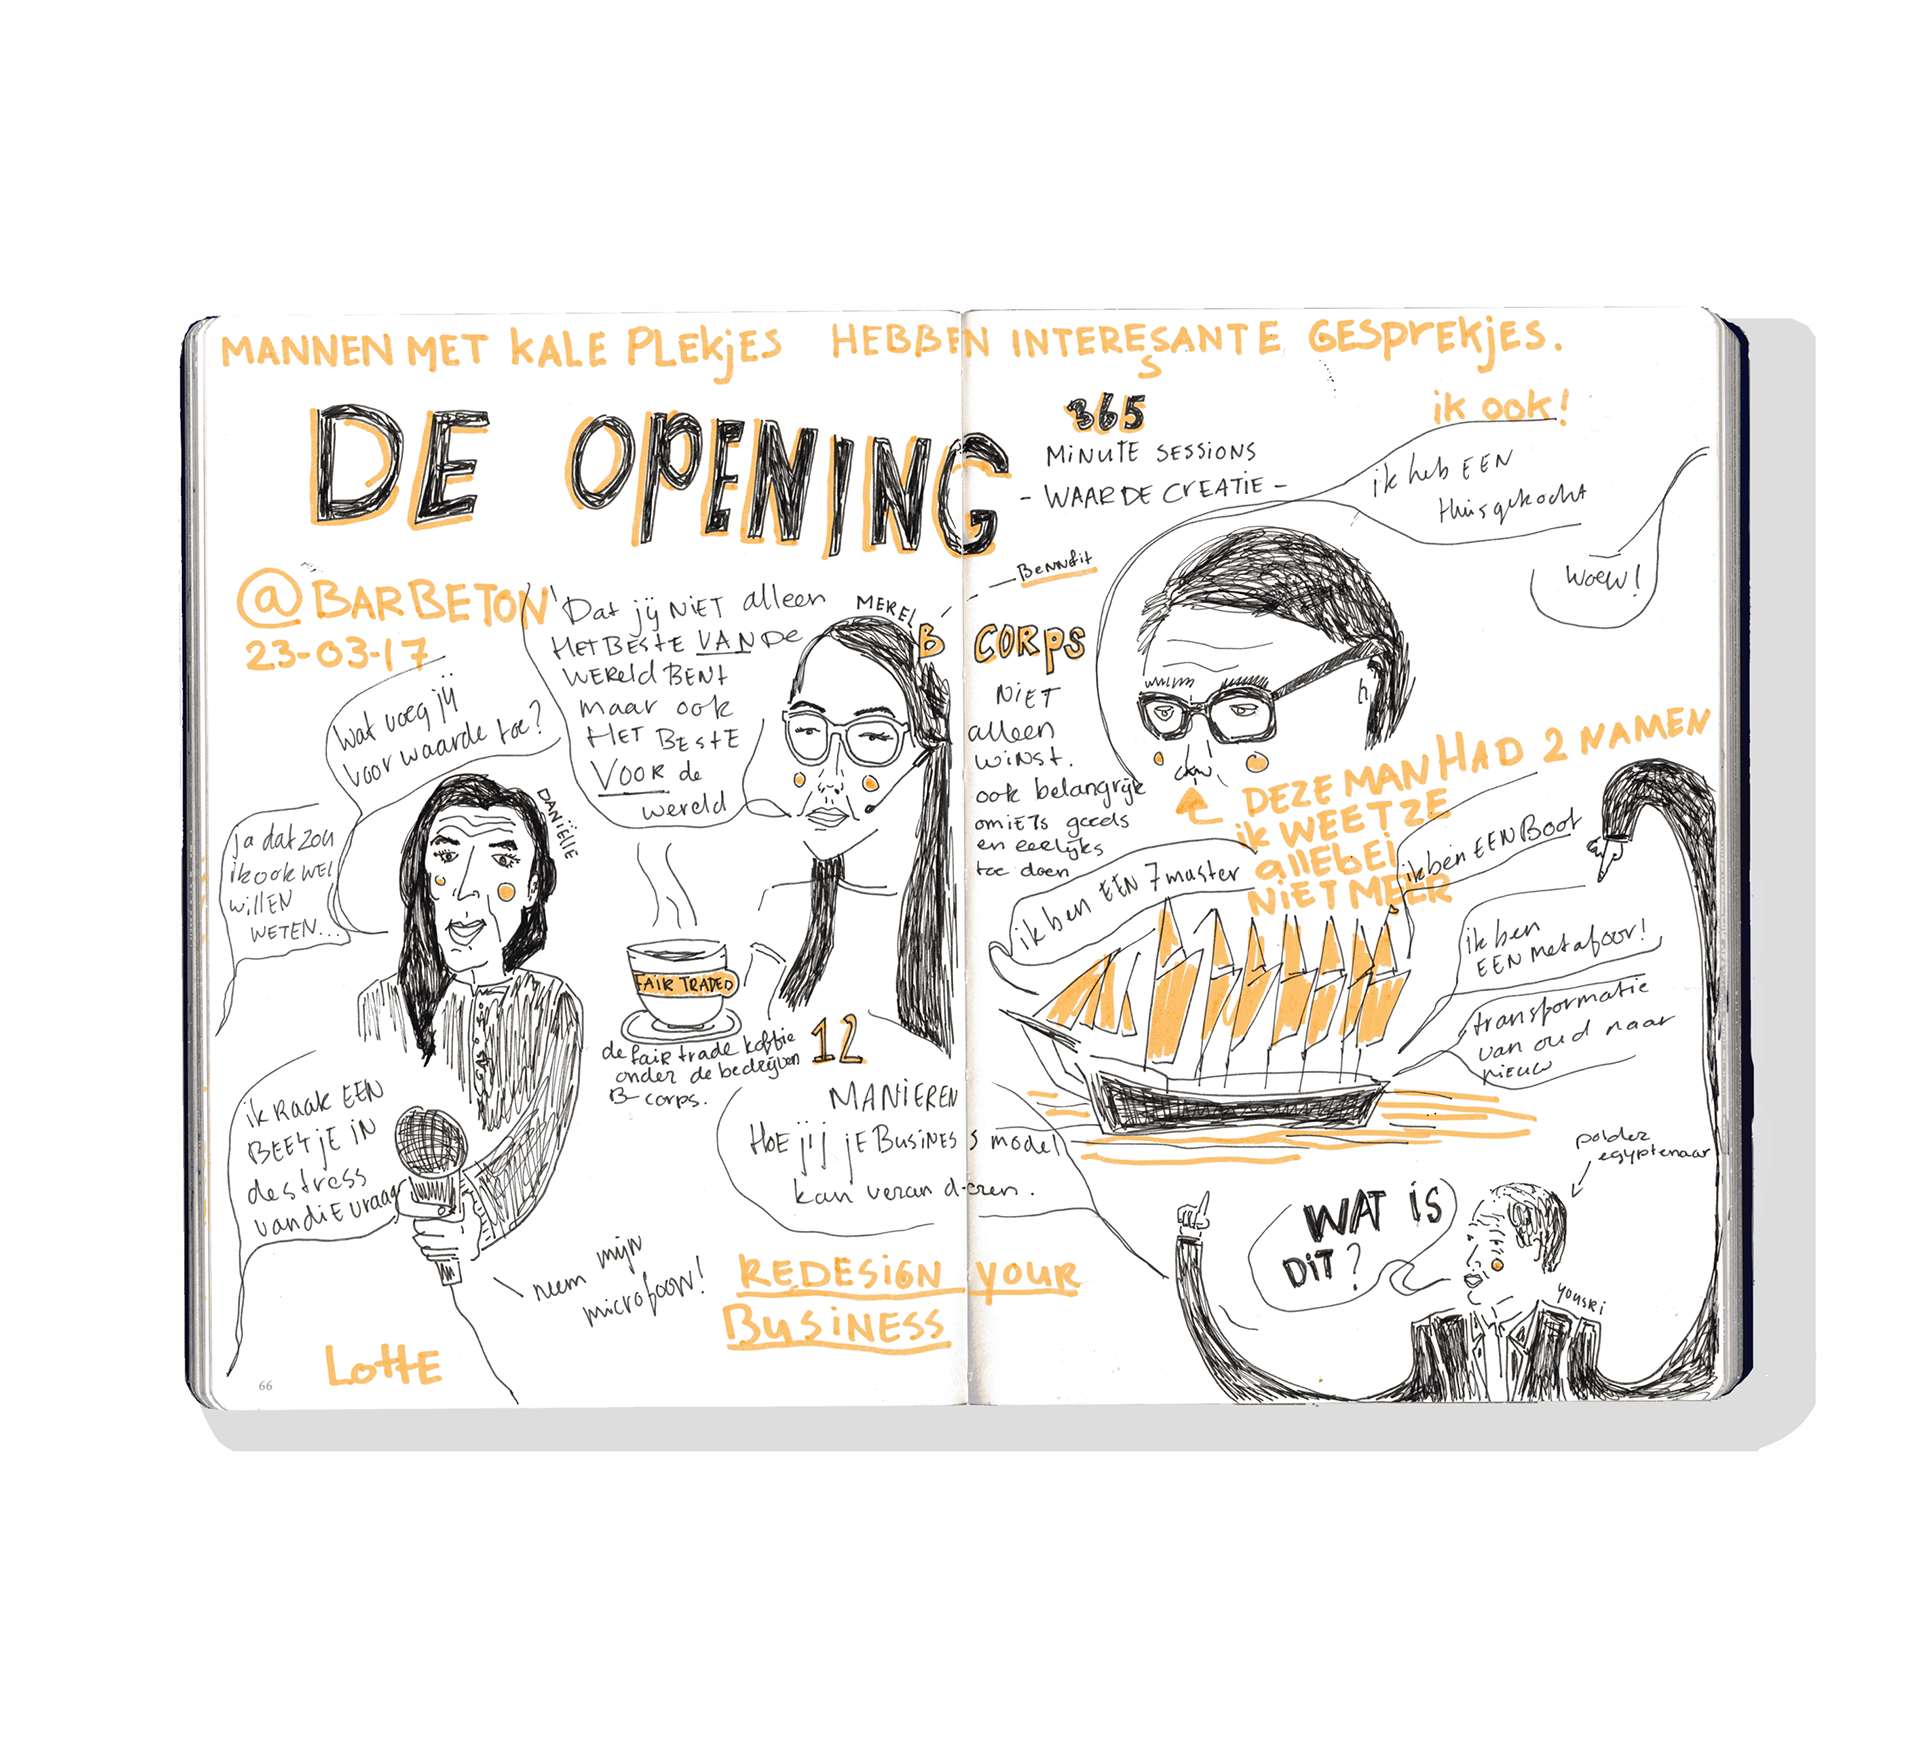 MANNEN MET KALE PLEKJES HEBBEN INTERESSANTE GESPREKJES.
ik ook!
DE OPENING
@BAR BETON
23-03-17
365
MINUTE SESSIONS
- WAARDE CREATIE -
ik heb EEN
thuis gekocht
woew!
Wat voeg jij
voor waarde toe?
ja dat zou
ik ook WEL
WILLEN
WETEN...
DANIËLLE
Dat jij NIET alleen
HET BESTE VAN DE
WERELD BENT
maar ook
HET BESTE
VOOR de
wereld
MEREL
Bennefit
B CORPS
NIET
alleen
WINST.
ook belangrijk
om iETs goeds
en eerlijks
toe doen
DEZE MAN HAD 2 NAMEN
ik WEET ZE
allEBEi
NiET MEER
ik ben EEN 7 master
ik ben EEN BOOT
ik ben
EEN metafoor!
transformatie
van oud naar
nieuw
FAIR TRADED
de fair trade koffie
onder de bedrijven
B-corps.
12
MANIEREN
HOE jij jE BUSINESS model
kan veranderen.
ik RAAK EEN
BEETJE IN
de stress
van diE vraag
neem mijn
microfoon!
REDESIGN YOUR
BUSINESS
LOTTE
66
polder
egyptenaar
WAT IS
DIT?
youski